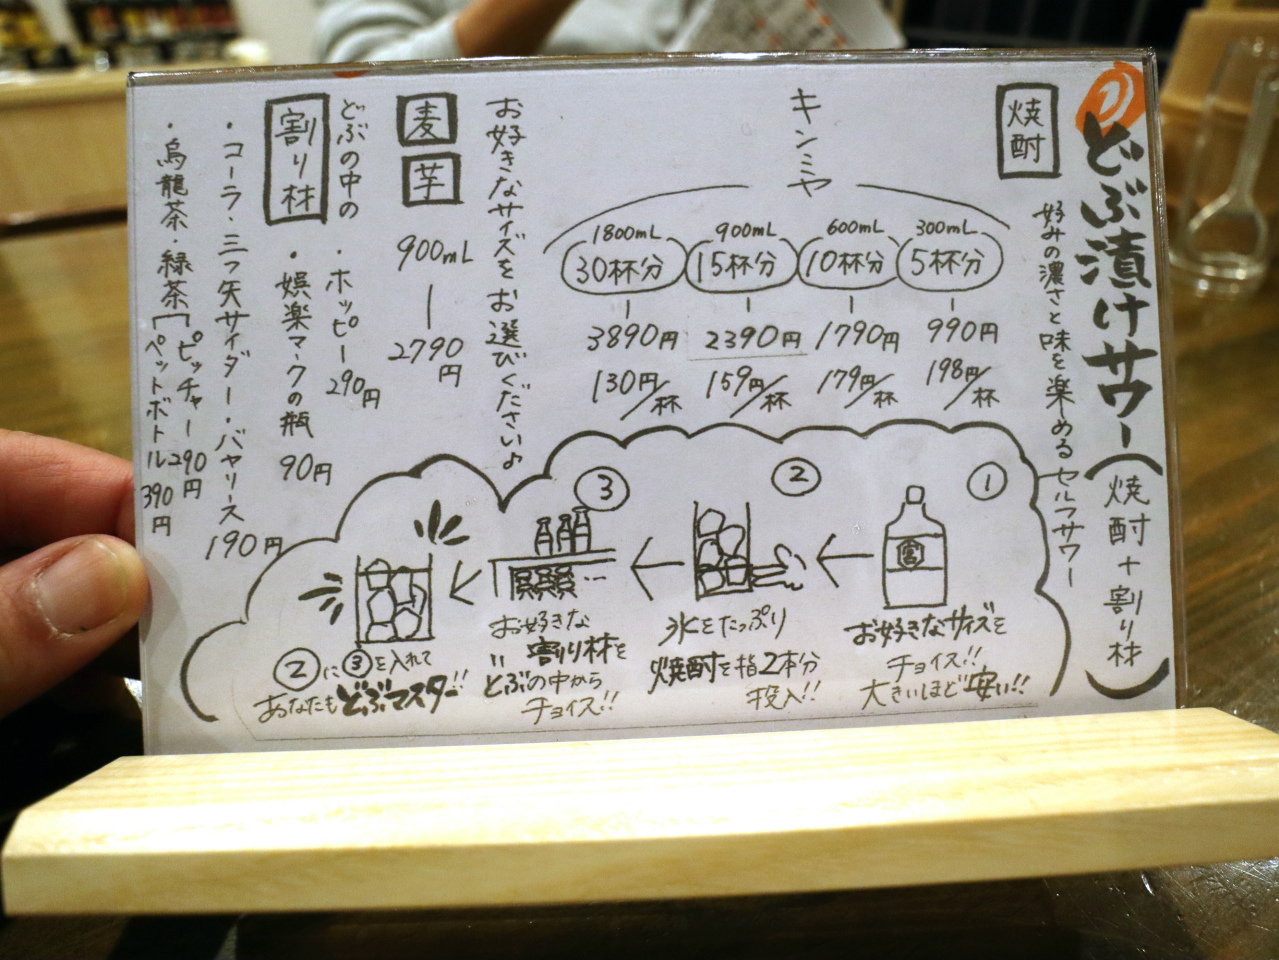 の
どぶ漬けサワー(焼酎+割り材)
好みの濃さと味を楽める セルフサワー
焼酎
キンミヤ
300mL
5杯分
990円
198円/杯
600mL
10杯分
1790円
179円/杯
900mL
15杯分
2390円
159円/杯
1800mL
30杯分
3890円
130円/杯
お好きなサイズをお選びください♪
麦
芋
900mL
2790円
どぶの中の
割り材
・ホッピー 290円
・娯楽マークの瓶 90円
・コーラ・三ツ矢サイダー・バヤリース 190円
・烏龍茶・緑茶
ピッチャー 290円
ペットボトル 390円
①
宮
お好きなサイズを
チョイス!!
大きいほど安い!!
②
氷をたっぷり
焼酎を指2本分
投入!!
③
お好きな
割り材を
どぶの中から
チョイス!!
②に③を入れて
あなたもどぶマスター!!